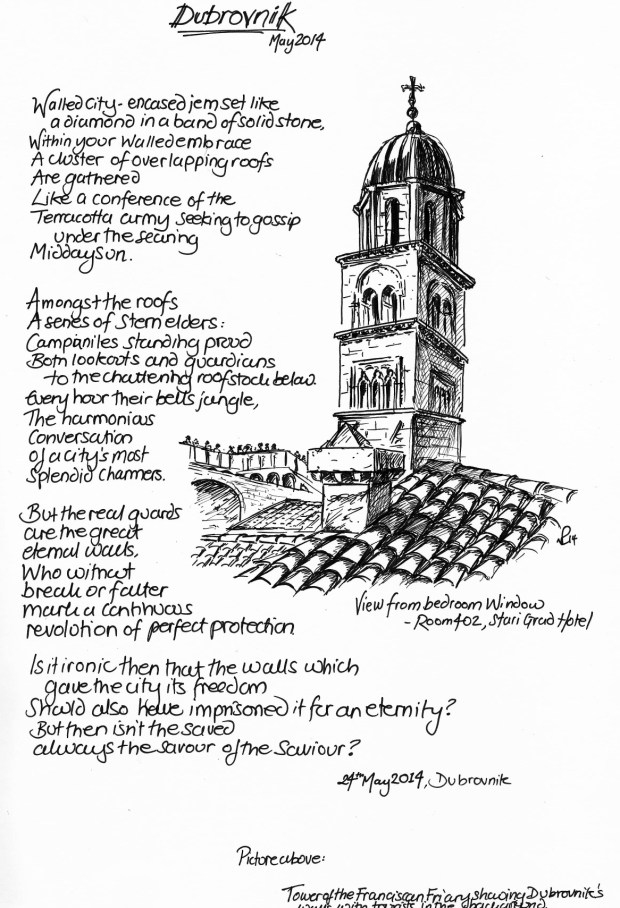 Dubrovnik
May 2014
Walled city - encased jem set like
a diamond in a band of solid stone,
Within your walled embrace
A cluster of overlapping roofs
Are gathered
Like a conference of the
Terracotta army seeking to gossip
under the searing
Midday sun.
Amongst the roofs
A series of stern elders:
Campaniles standing proud
Both lookouts and guardians
to the chattering roofstock below.
Every hour their bells jangle,
The harmonious
Conversation
of a city's most
Splendid charmers.
But the real guards
are the great
eternal walls,
Who without
break or falter
mark a continuous
revolution of perfect protection
Is it ironic then that the walls which
gave the city its freedom
Should also have imprisoned it for an eternity?
But then isn't the saved
always the savour of the Saviour?
24th May 2014, Dubrovnik
View from bedroom Window
- Room 402, Stari Grad Hotel
Picture above:
Tower of the Franciscan Friary showing Dubrovnik's
walls with tourists in the background